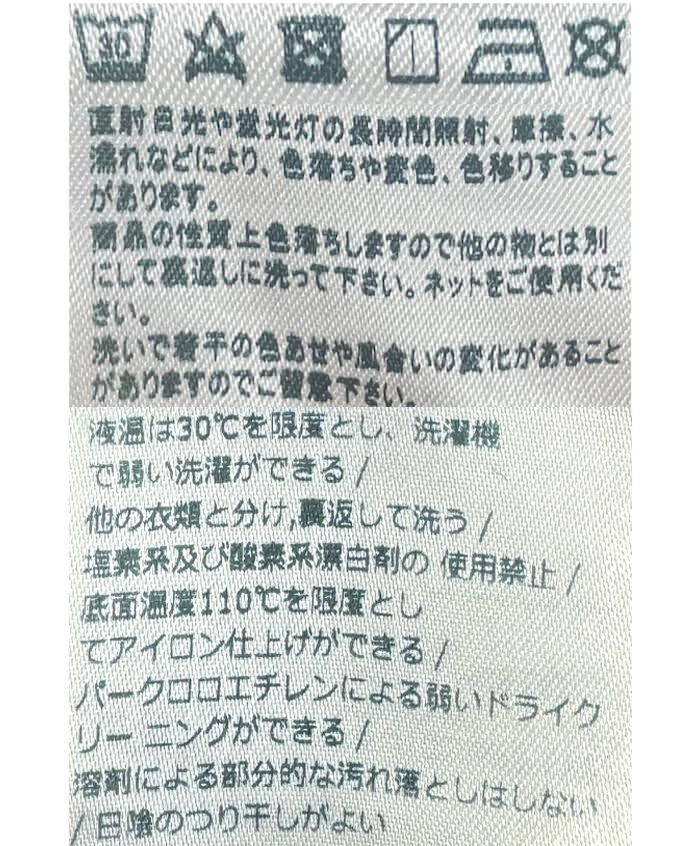 30
直射日光や蛍光灯の長時間照射、摩擦、水
濡れなどにより、色落ちや変色、色移りすること
があります。
商品の性質上色落ちしますので他の物とは別
にして裏返しに洗って下さい。ネットをご使用くだ
さい。
洗いで若干の色あせや風合いの変化があること
がありますのでご留意下さい。
液温は30℃を限度とし、洗濯機
で弱い洗濯ができる /
他の衣類と分け,裏返して洗う /
塩素系及び酸素系漂白剤の 使用禁止 /
底面温度110℃を限度とし
てアイロン仕上げができる /
パークロロエチレンによる弱いドライク
リー ニングができる /
溶剤による部分的な汚れ落としはしない
/ 日陰のつり干しがよい